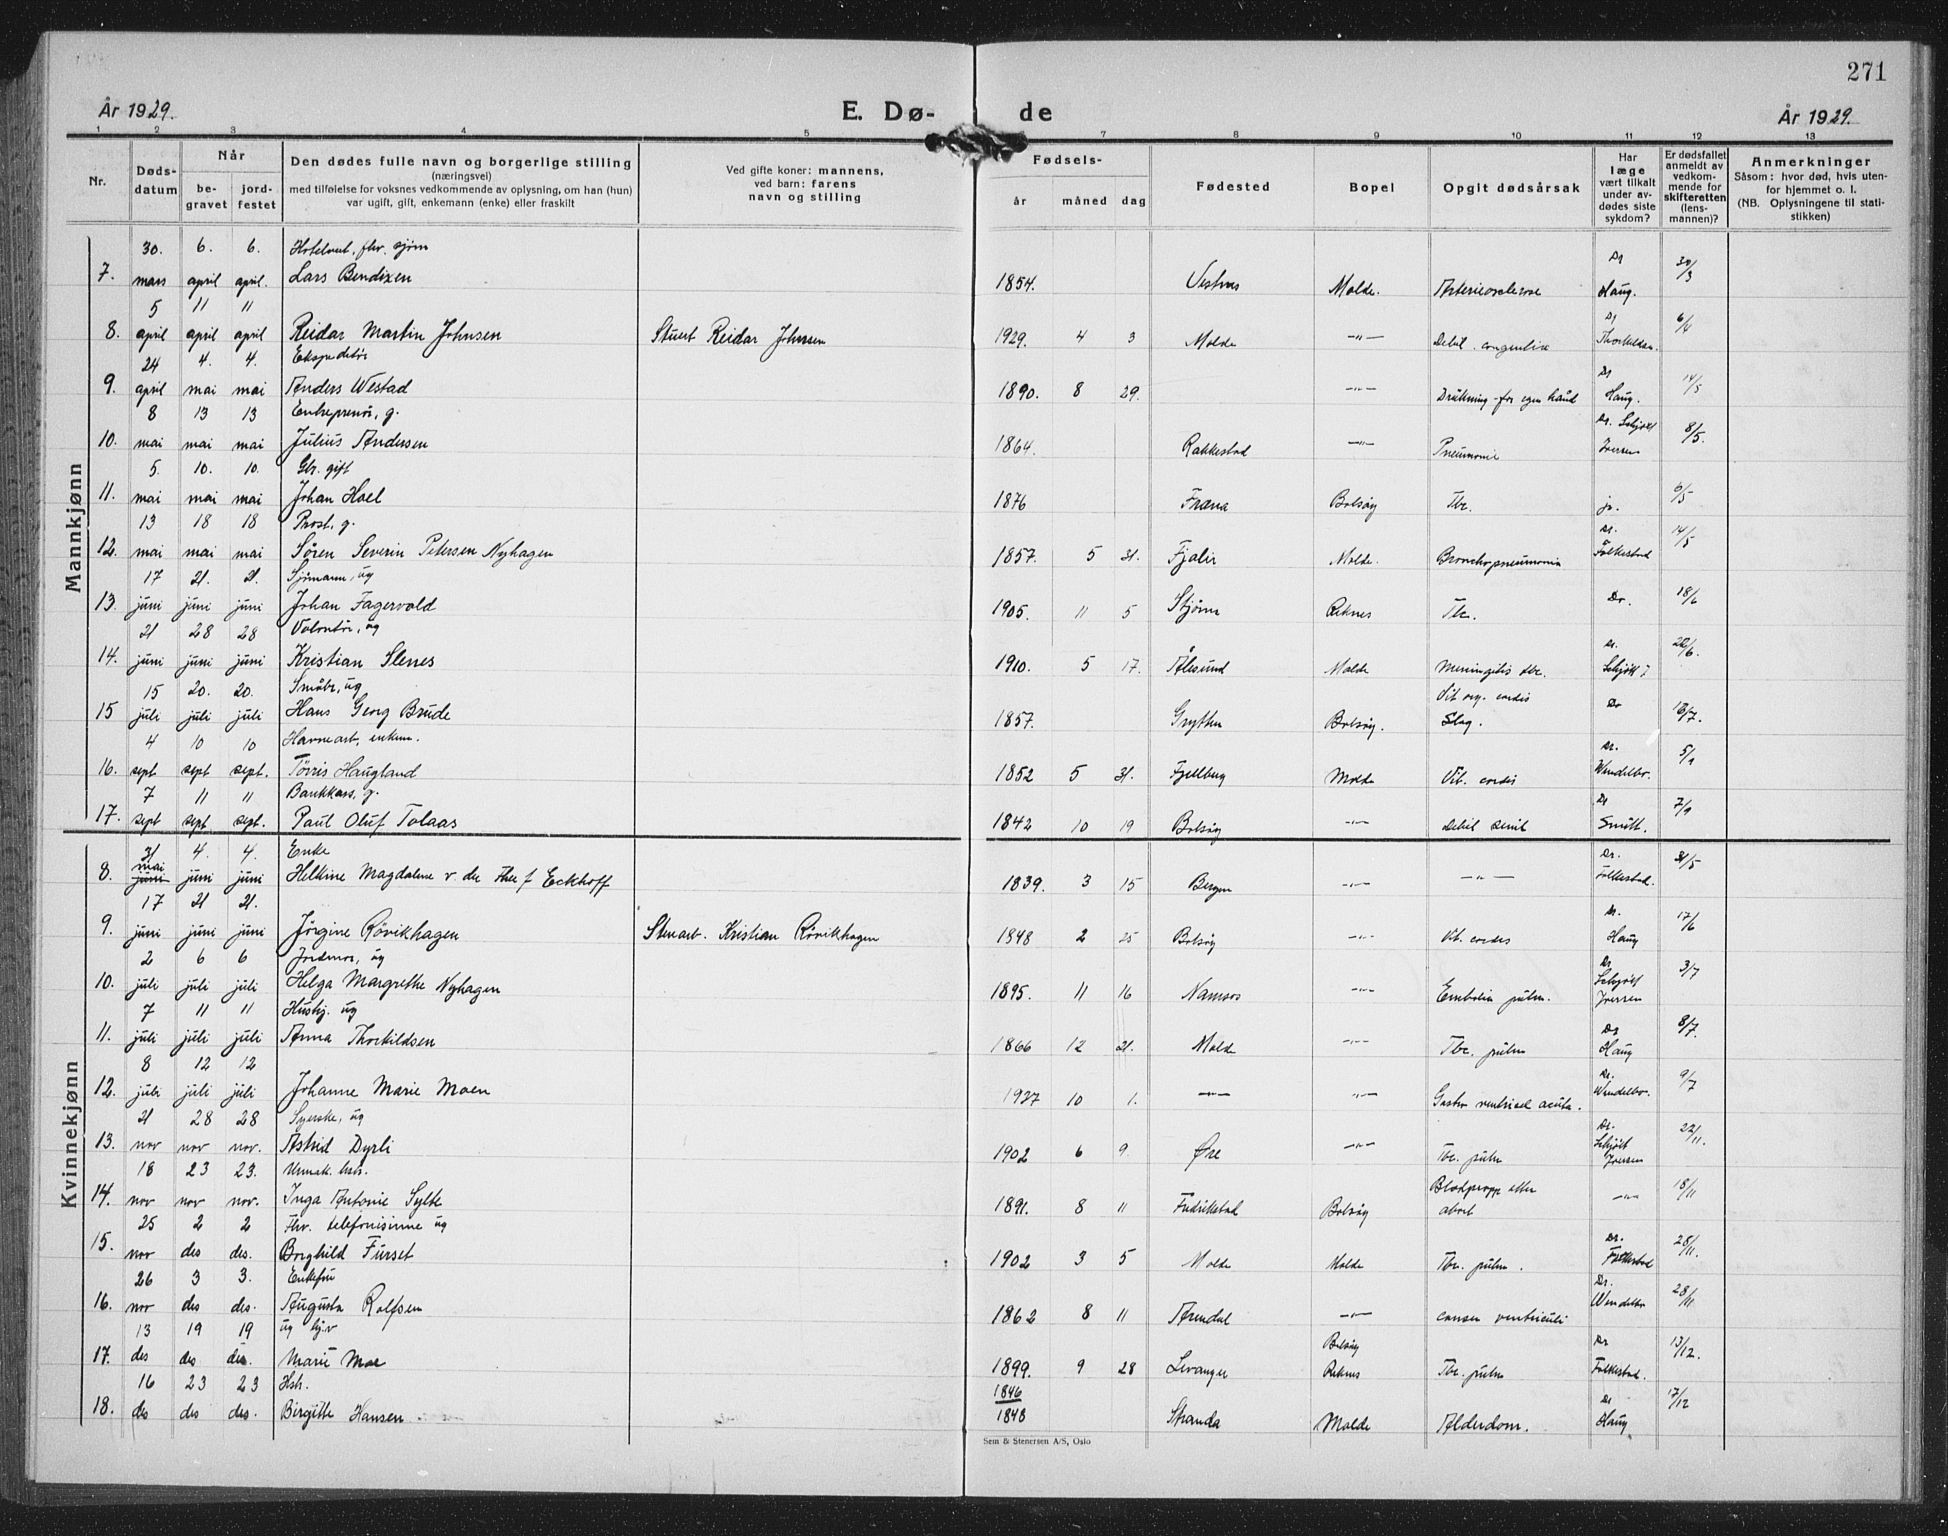 271
År 1929. E. Dø- de År 1929.
1 2 3 4 5 7 8 9 10 11 12 13
Nr. Døds-datum Når be-gravet jord-festet Den dødes fulle navn og borgerlige stilling (næringsvei) med tilføielse for voksnes vedkommende av oplysning, om han (hun) var ugift, gift, enkemann (enke) eller fraskilt Ved gifte koner: mannens, ved barn: farens navn og stilling Fødsels- år måned dag Fødested Bopel Opgit dødsårsak Har læge vært tilkalt under av-dødes siste sykdom? Er dødsfallet anmeldt av vedkom-mende for skifteretten (lens-mannen)? Anmerkninger Såsom: hvor død, hvis uten-for hjemmet o. l. (NB. Oplysningene til stati-stikken)
Mannkjønn
30. 6. 6. Dr 30/3
7. mars april april. Lars Bendixen 1854. Vestnes Molde. Arteriosclerose Haug.
5 11 11 Dr 6/4
8. april april april Reidar Martin Johnsen Stuert Reidar Johnsen 1929. 4 3 Molde -"- Debil. congenitae
24 4. 4. Ekspeditør Dr 14/5
9. april mai mai Anders Westad 1890. 8 29. -"- Drukning - for egen hånd Haug.
8 13 13 Entreprenør, g. Dr. Schjøtt 8/5.
10. mai mai mai Julius Andersen 1864. Rakkestad -"- Pneumonie Iversen
5. 10. 10. Gbr. gift 6/5
11. mai mai mai Johan Hoel 1876 Fræna Bolsøy Tbc. ja.
13 18 18 Prost, g. Dr. 14/5
12. mai mai mai Søren Severin Petersen Nyhagen 1857. 5 31. Fjaler Molde. Bronchopneumonia Folkestad
17 21. 21. Sjømann, ug 18/6
13. juni juni juni Johan Fagervold 1905. 11 5 Stjørna Reknes Tbc. Dr.
21 28 28 Volontør, ug Dr. 22/6.
14. juni juni juni Kristian Slenes 1910. 5 17. Ålesund Molde Meningitis tbc. Schjøtt I
15 20. 20. Småbr, ug Vit. org. cordis
15 juli juli juli Hans Georg Brude 1857. Grytten Bolsøy. Slag. Dr
4 10 10 Havnearb, enkem. Dr. 5/9
16. sept sept sept. Tørris Haugland 1852 5 31. Fjellberg Molde Vit. cordis Wendelbo.
7 11 11 Bankkass. g. Dr 7/9
17. sept sept sept. Paul Oluf Tolaas 1842 10 19 Bolsøy -"- Debil senil Smitt.
Kvinnekjønn
31 4. 4. Enke Dr. 31/5
8. mai juni juni juni Helkine Magdalene v. der f Eckhoff 1839. 3 15 Bergen -"- -"- Folkestad.
17 21 21. Dr. 17/6
9. juni juni juni Jørgine Røvikhagen Stenarb. Kristian Røvikhagen 1848 2 25 Bolsøy -"- Vit. cordis Haug
2 6 6 Jordmor, ug Dr 3/7
10. juli juli juli Helga Margrethe Nyhagen 1895. 11 16 Namsos -"- Embolia pulm. Schjøtt Iversen
7 11 11 Hush. ug 8/7.
11. juli juli juli Anna Thorkildsen 1866 12 21. Molde -"- Tbc. pulm Dr Haug
8 12 12 Dr. 9/7
12. juli juli juli Johanne Marie Moen 1927 10 1. -"- -"- Gastro ventricul acuta. Wendelbo.
21 28 28 Syerske, ug Dr. 22/11.
13. nov nov nov. Astrid Dyrli 1902 6 9. Øre -"- Tbc. pulm Schjøtt Iversen
18 23 23. Urmak. hstr. Blodpropp etter 18/11
14. nov nov nov. Inga Antonie Sylte 1891. 8 11 Fredrikstad Bolsøy abort -"-
25 2 2 Fhv. telefonisinne ug Dr. 28/11.
15. nov des des. Borghild Furset 1902 3 5 Molde Molde Tbc. pulm. Folkestad
26 3 3. Enkefru Dr. 28/11
16. nov des des. Augusta Rolfsen 1862 8 11 Arendal -"- cancer ventriculi Wendelbo
13 19 19 ug hj.v Bolsøy Dr 13/12.
17. des des des. Marie Moe 1899. 9 28 Levanger Reknes Tbc. pulm Folkestad.
16 23 23 Hstr. 1846 Dr 17/12
18. des des des. Birgitte Hansen 1848 Stranda Molde Alderdom. Haug
Sem & Stenersen A/S, Oslo